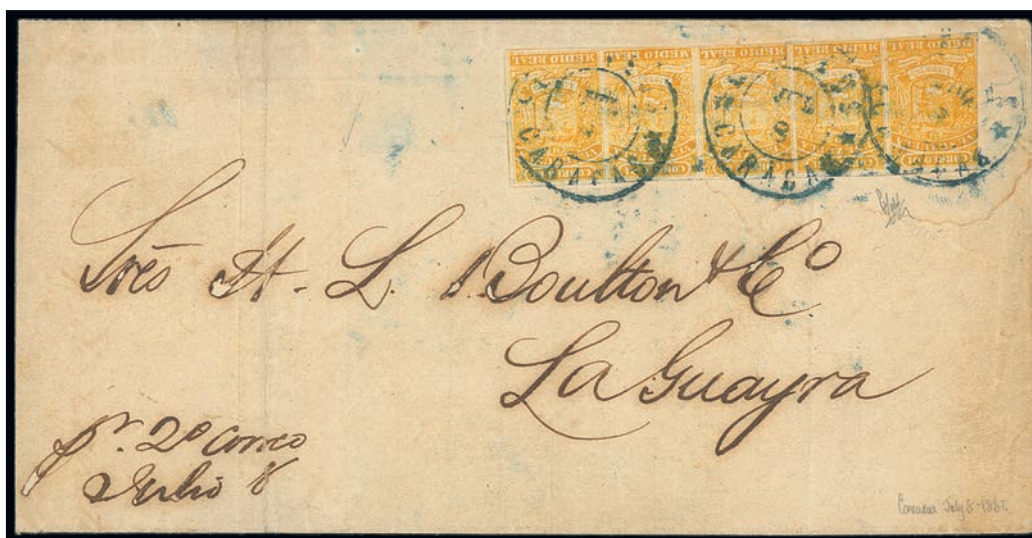 MEDIO REAL MEDIO REAL MEDIO REAL MEDIO REAL MEDIO REAL
CARACAS CARACAS
Sres H. L. Boulton & Co
La Guayra
pr. 2o Correo
Julio 8
Caracas July 8-1862